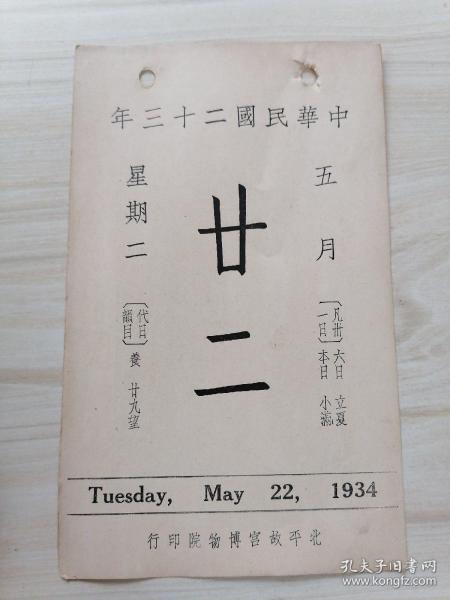 中華民國二十三年
五月
〔凡卅一日〕
六日 立夏
本日 小滿
廿二
星期二
〔韻目代日〕
養 廿九望
Tuesday, May 22, 1934
北平故宮博物院印行
孔夫子旧书网
www.kongfz.com